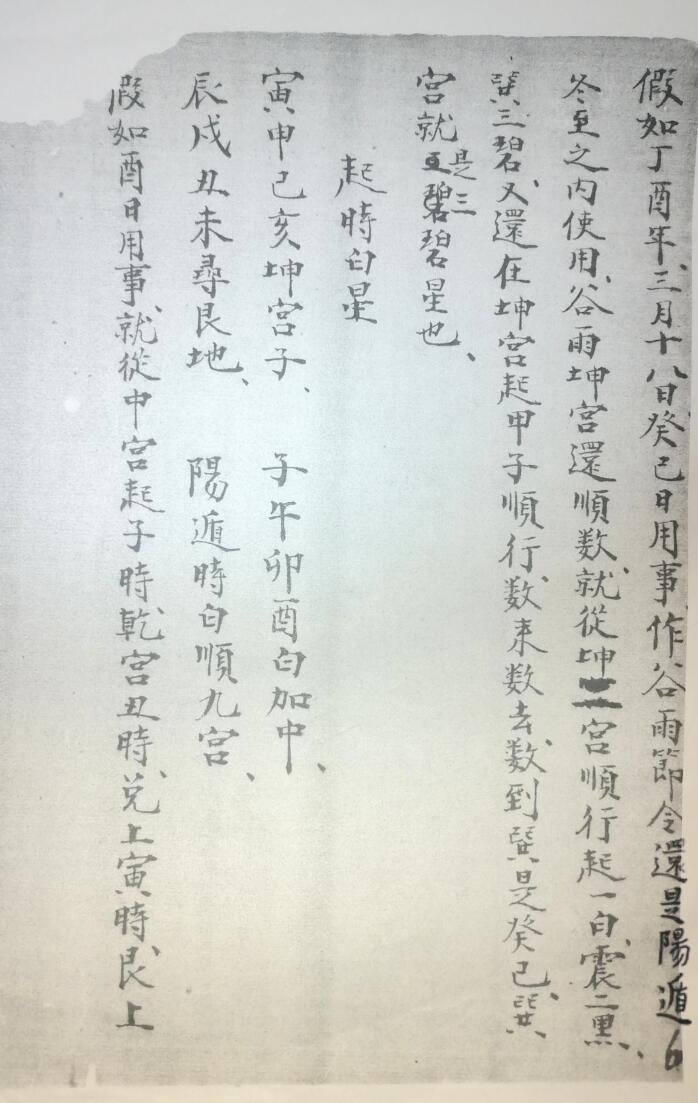 假如丁酉年、三月十八日癸巳日用事、作谷雨節令還是陽遁
冬至之内使用、谷雨坤宮還順数、就從坤宮順行起一白、震二黒、
巽三碧、又還在坤宮起甲子順行、数来数去、数到巽是癸巳、巽
宮就是三碧星也、
起時白星
寅申巳亥坤宮子、子午卯酉白加中、
辰戌丑未尋艮地、陽遁時白順九宮、
假如酉日用事、就從中宮起子時、乾宮丑時、兑上寅時、艮上